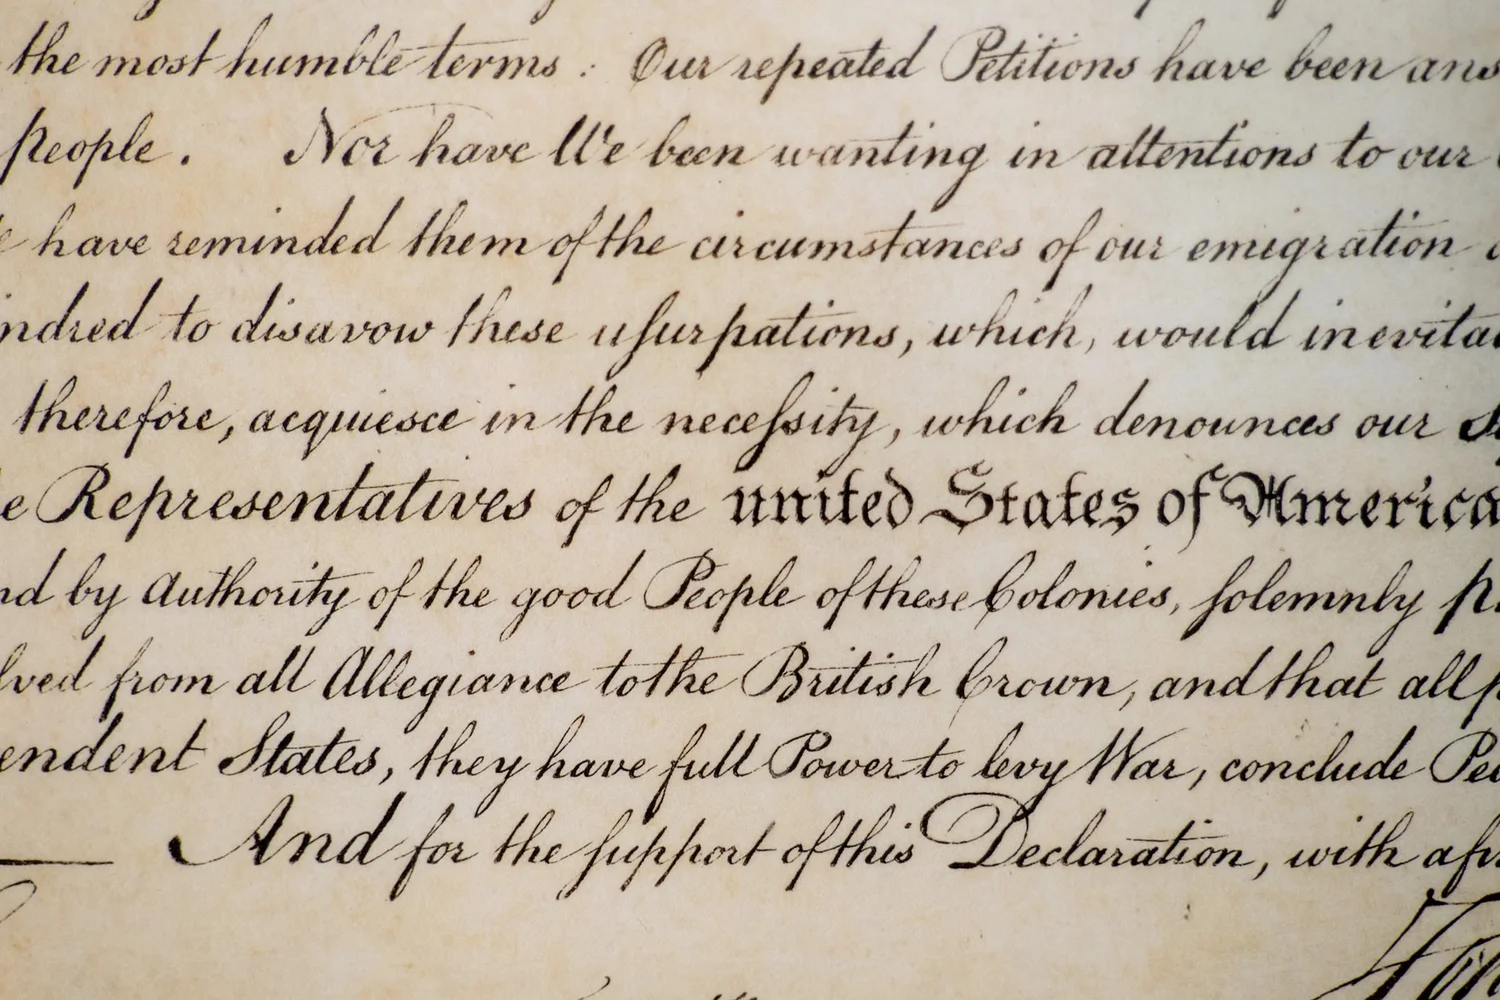 the most humble terms : Our repeated Petitions have been ans
people . Nor have We been wanting in attentions to our
have reminded them of the circumstances of our emigration
ndred to disavow these uſurpations, which, would inevita
therefore, acquiesce in the neceſsity, which denounces our
e Representatives of the united States of America
nd by Authority of the good People of these Colonies, ſolemnly p
lved from all Allegiance to the British Crown, and that all p
endent States, they have full Power to levy War, conclude Pea
And for the ſupport of this Declaration, with a fir